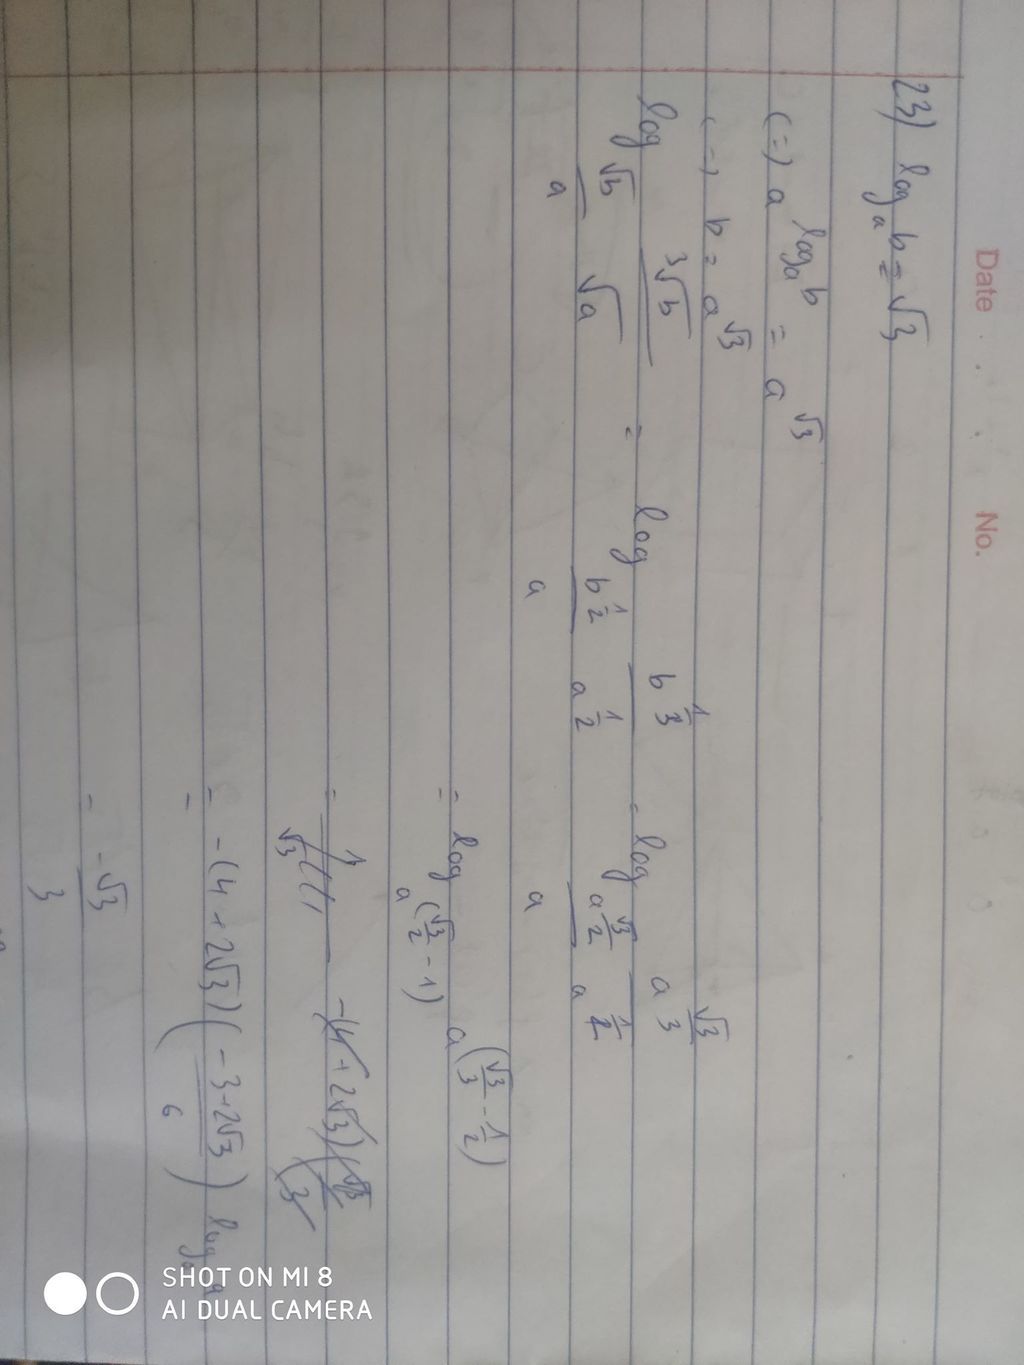 Date
No.
23) log_a b = √3
(=) a^(log_a b) = a^(√3)
(=) b = a^(√3)
log_(√b/a) (∛b/√a) = log_(b^(1/2)/a) (b^(1/3)/a^(1/2)) = log_(a^(√3/2)/a) (a^(√3/3)/a^(1/2))
= log_(a^(√3/2 - 1)) a^(√3/3 - 1/2)
=
= -(4 + 2√3) ((-3+2√3)/6) log_a a
= -√3/3
SHOT ON MI 8
AI DUAL CAMERA